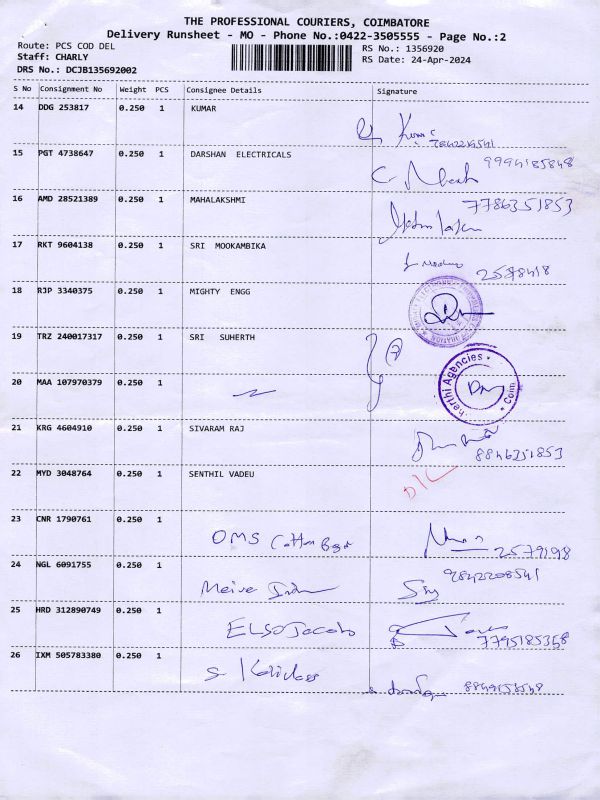 THE PROFESSIONAL COURIERS, COIMBATORE
Delivery Runsheet - MO - Phone No.:0422-3505555 - Page No.:2
Route: PCS COD DEL
RS No.: 1356920
Staff: CHARLY
RS Date: 24-Apr-2024
DRS No.: DCJB135692002
S No Consignment No Weight PCS Consignee Details Signature
14 DDG 253817 0.250 1 KUMAR
15 PGT 4738647 0.250 1 DARSHAN ELECTRICALS
9994185848
16 AMD 28521389 0.250 1 MAHALAKSHMI
7786351853
17 RKT 9604138 0.250 1 SRI MOOKAMBIKA
18 RJP 3340375 0.250 1 MIGHTY ENGG
19 TRZ 240017317 0.250 1 SRI SUHERTH
20 MAA 107970379 0.250 1
Agencies
Coim
21 KRG 4604910 0.250 1 SIVARAM RAJ
8846351853
22 MYD 3048764 0.250 1 SENTHIL VADEU
D/L
23 CNR 1790761 0.250 1 OMS Cotton
2579198
24 NGL 6091755 0.250 1
9842208541
25 HRD 312890749 0.250 1
7795185358
26 IXM 505783380 0.250 1
8849158548